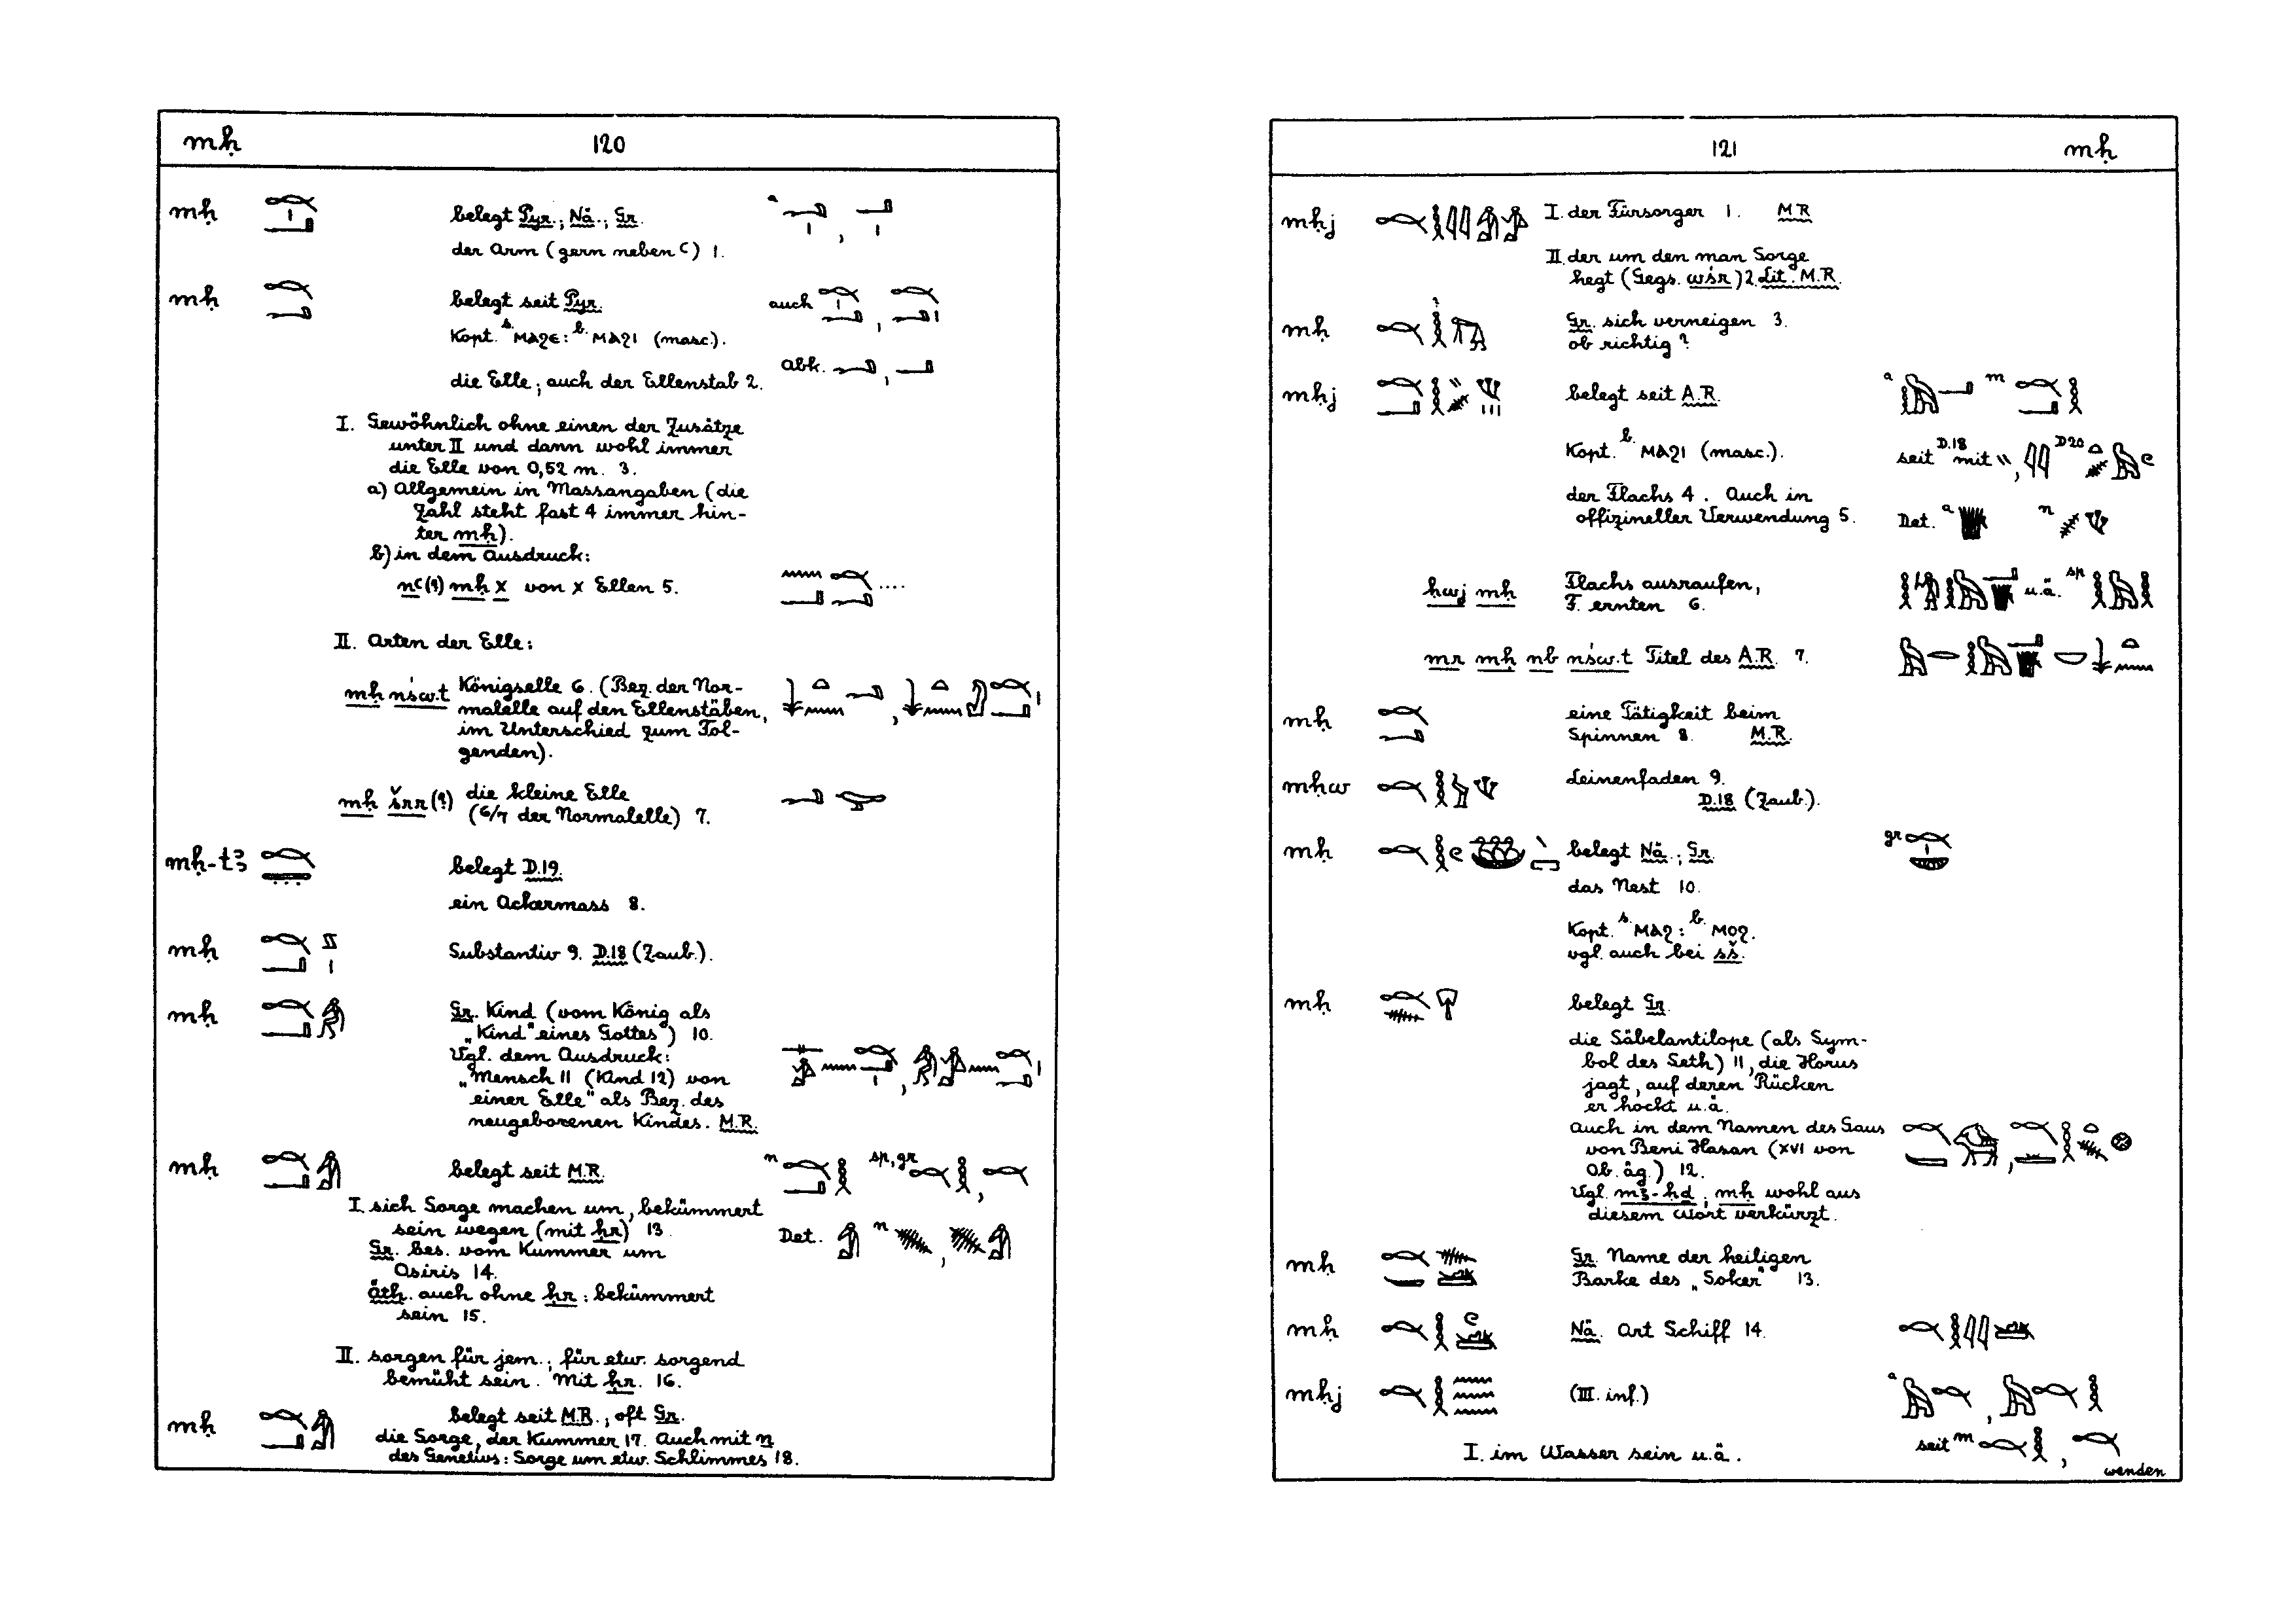 mḥ 120
mḥ belegt Pyr.; Nä.; Gr. a
der Arm (gern neben ꜥ) 1.
mḥ belegt seit Pyr. auch
Kopt. s. ⲙⲁϩⲉ: b. ⲙⲁϩⲓ (masc.).
die Elle; auch der Ellenstab 2. Abk.
I. Gewöhnlich ohne einen der Zusätze
unter II und dann wohl immer
die Elle von 0,52 m. 3.
a) Allgemein in Massangaben (die
Zahl steht fast 4 immer hin-
ter mḥ).
b) in dem Ausdruck:
nꜥ(?) mḥ x von x Ellen 5. ....
II. Arten der Elle:
mḥ nśw.t Königselle 6. (Bez. der Nor-
malelle auf den Ellenstäben,
im Unterschied zum Fol-
genden).
mḥ šrr(?) die kleine Elle
(6/7 der Normalelle) 7.
mḥ-tꜣ belegt D.19.
ein Ackermass 8.
mḥ Substantiv 9. D.18 (Zaub.).
mḥ Gr. Kind (vom König als
„Kind" eines Gottes) 10.
Vgl. dem Ausdruck:
„Mensch 11 (Kind 12) von
einer Elle" als Bez. des
neugeborenen Kindes. M.R.
mḥ belegt seit M.R. n sp, gr
I. sich Sorge machen um, bekümmert
sein wegen (mit ḥr) 13
Det. n
Gr. bes. vom Kummer um
Osiris 14.
äth. auch ohne ḥr: bekümmert
sein 15.
II. sorgen für jem.; für etw. sorgend
bemüht sein. Mit ḥr. 16.
mḥ belegt seit M.R., oft Gr.
die Sorge, der Kummer 17. Auch mit n
des Genetivs: Sorge um etw. Schlimmes 18.
121 mḥ
mḥj I. der Fürsorger 1. M.R
II. der um den man Sorge
hegt (Gegs. wśr) 2. Lit. M.R.
mḥ Gr. sich verneigen 3.
ob richtig?
mḥj belegt seit A.R. a m
Kopt. b. ⲙⲁϩⲓ (masc.). seit D.18 mit, D20
der Flachs 4. Auch in
offizineller Verwendung 5. Det. a n
ḥwj mḥ Flachs ausraufen,
F. ernten 6. u.ä. sp
mr mḥ nb nśw.t Titel des A.R. 7.
mḥ eine Tätigkeit beim
Spinnen 8. M.R.
mḥw Leinenfaden 9.
D.18 (Zaub.).
mḥ belegt Nä.; Gr. gr
das Nest 10.
Kopt. s. ⲙⲁϩ: b. ⲙⲟϩ.
vgl. auch bei sš.
mḥ belegt Gr.
die Säbelantilope (als Sym-
bol des Seth) 11, die Horus
jagt, auf deren Rücken
er hockt u.ä.
auch in dem Namen des Gaus
von Beni Hasan (XVI von
Ob. äg.) 12.
Vgl. mꜣ-ḥḏ; mḥ wohl aus
diesem Wort verkürzt.
mḥ Gr. Name der heiligen
Barke des „Soker" 13.
mḥ Nä. Art Schiff 14.
mḥj (III. inf.) a
I. im Wasser sein u.ä. seit m
wenden